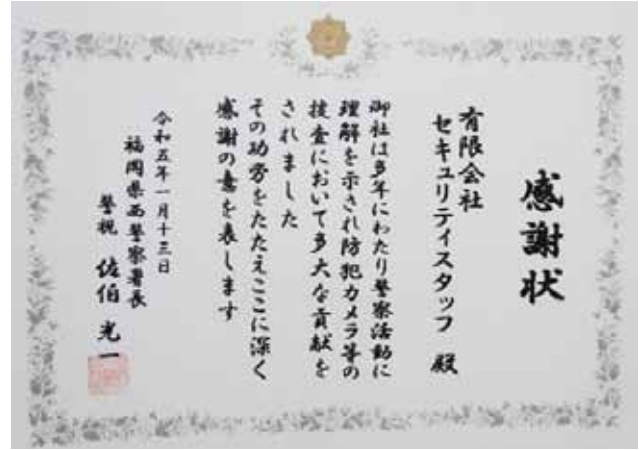 感謝状
有限会社
セキュリティスタッフ 殿
御社は多年にわたり警察活動に
理解を示され防犯カメラ等の
捜査において多大な貢献を
されました
その功労をたたえここに深く
感謝の意を表します
令和五年一月十三日
福岡県西警察署長
警視 佐伯光一